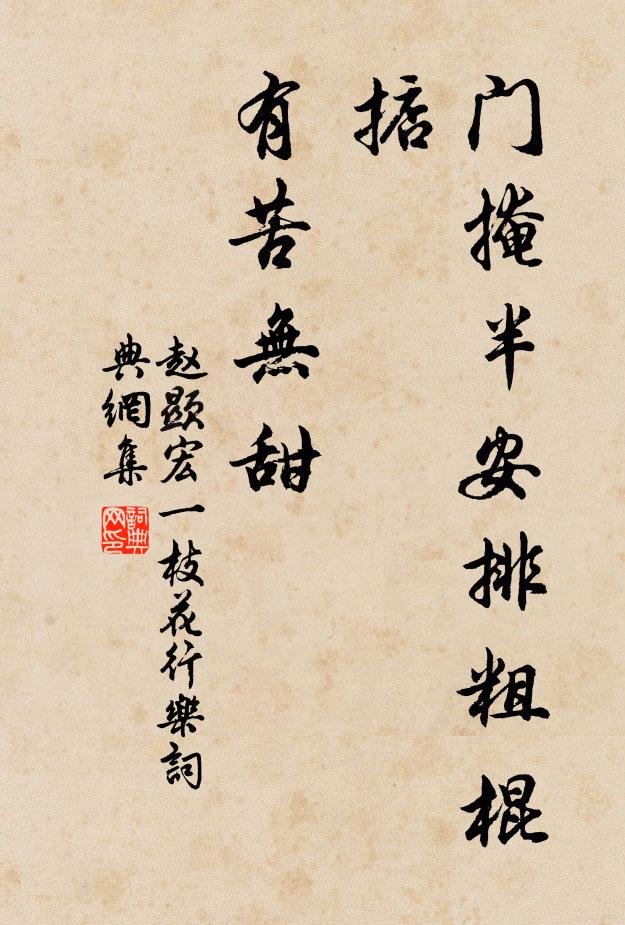 门掩半安排粗棍
掂
有苦無甜
赵顯宏一枝花行樂詞
典網集
詞典网印